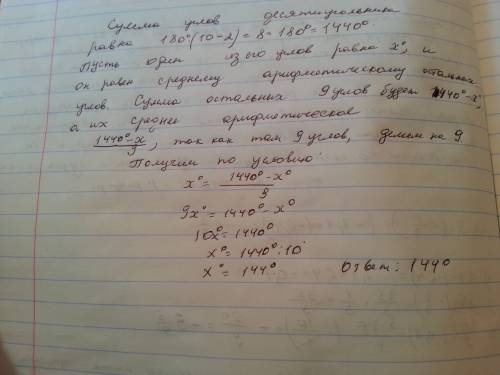 Сумма углов десятиугольника
равна 180°(10-2) = 8 · 180° = 1440°.
Пусть один из его углов равна x°, и
он равен среднему арифметическому остальных
углов. Сумма остальных 9 углов будет 1440°-x°,
а их среднее арифметическое
1440°-x°/9, так как там 9 углов, делим на 9.
Получим по условию:
x° = 1440°-x°/9
9x° = 1440°-x°
10x° = 1440°
x° = 1440° : 10
x° = 144° Ответ: 144°